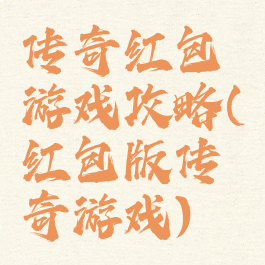 传奇红包
游戏攻略(
红包版传
奇游戏)